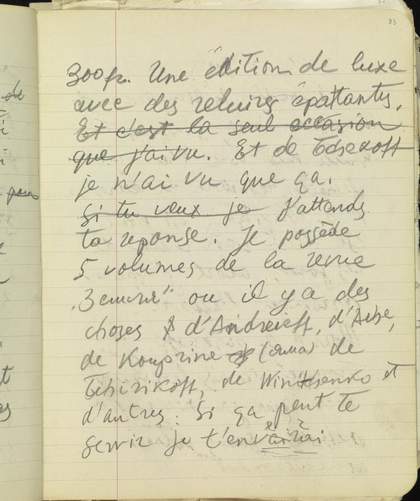 300 fr. Une édition de luxe
avec des reluires épattantes.
Et c'est la seul occasion
que j'ai vu. Et de Tchekoff
je n'ai vu que ça.
Si tu veux je J'attends
ta reponse. Je possède
5 volumes de la revue
ou il y a des
choses d'Andreieff, d'Asse,
de Kouprine de
Tchirikoff, de Winitsenko et
d'autres. Si ça peut te
servir je t'enverrai